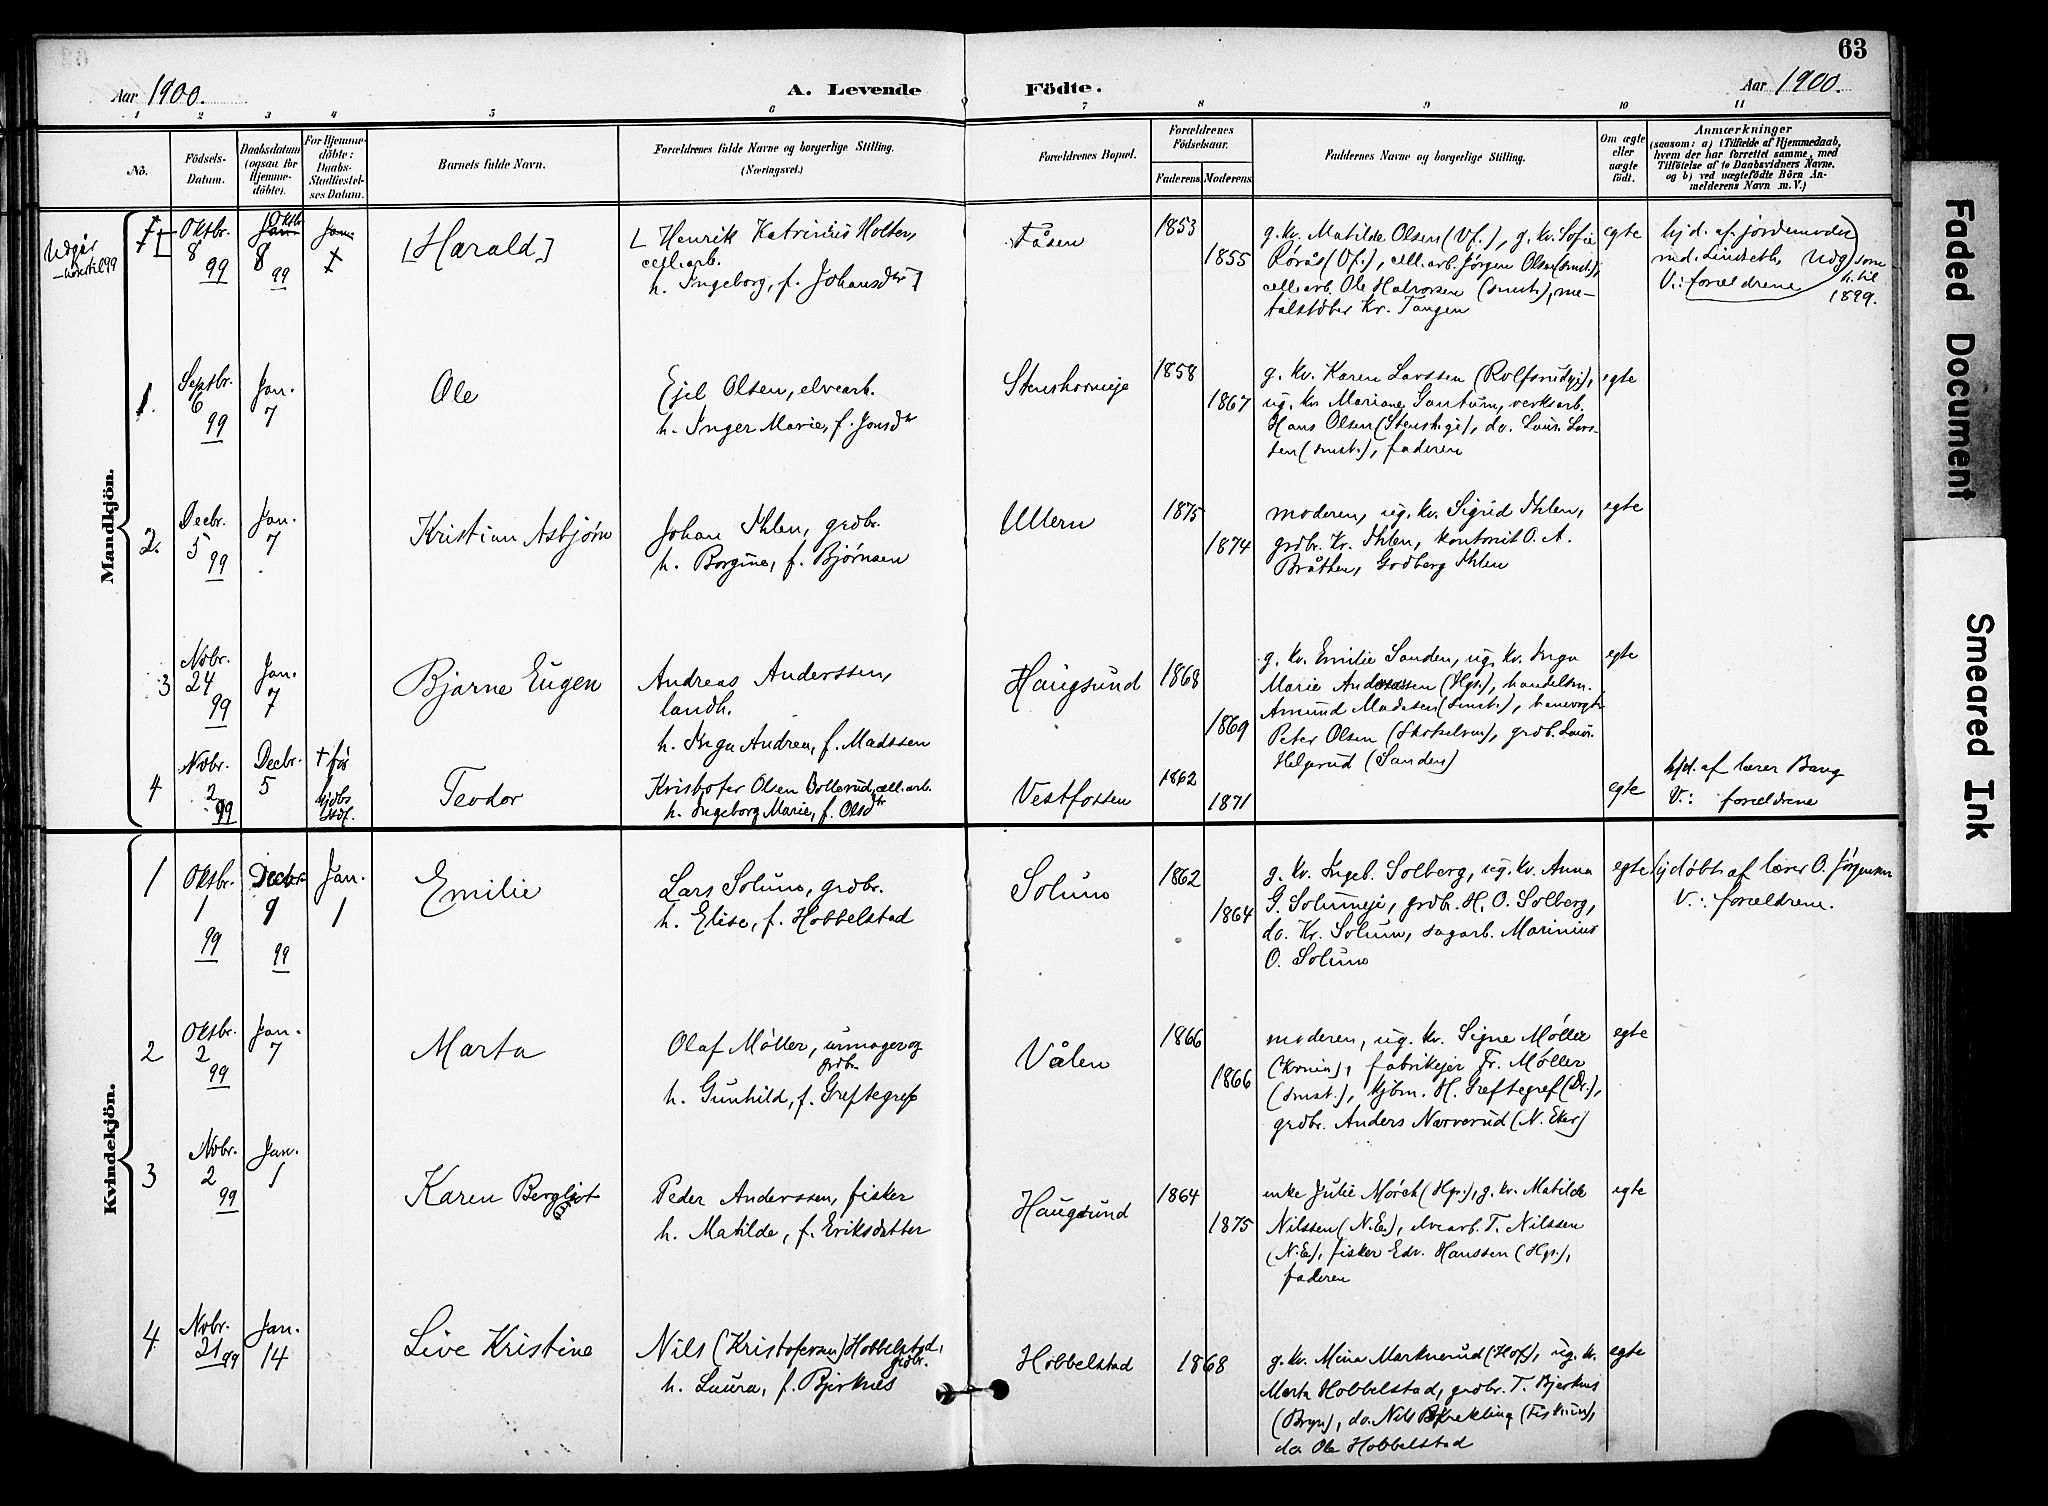 63
Aar 1900.
A. Levende
Födte.
Aar 1900.
1 2 3 4 5 6 7 8 9 10 11
No.
Födsels-Datum.
Daabsdatum (ogsaa for Hjemme-döbte).
For Hjemme-döbte: Daabs-Stadfæstel-ses Datum.
Barnets fulde Navn.
Forældrenes fulde Navne og borgerlige Stilling. (Næringsvei.)
Forældrenes Bopæl.
Forældrenes Födselsaar.
Faderens. Moderens.
Faddernes Navne og borgerlige Stilling.
Om ægte eller uægte födt.
Anmærkninger
(saasom: a) i Tilfælde af Hjemmedaab, hvem der har forrettet samme, med Tilföielse af to Daabsvidners Navne, og b) ved uægtefödte Börn An-melderens Navn m. V.)
Mandkjön.
Udgår
Oktbr. 8 99
Oktbr. 8 99
[Harald]
[Henrik Katrinius Holter,
cell.arb.
h. Ingeborg, f. Johansdtr]
Fåsen
1853
1855
g. kv. Matilde Olsen (Vf.), g. kv. Sofie
Rørås (Vf.), cell.arb. Jørgen Olsen (smst.),
cell.arb. Ole Halvorsen (smst.), me-
talstøber Kr. Tangen
egte
hjd. af jordemoder
md. Lindseth, Udg som
V.: forældrene h. til
1899.
1.
Septbr. 6 99
Jan. 7
Ole
Ejel Olsen, elvearb.
h. Inger Marie, f. Jonsdtr
Stenshorneje
1858
1867
g. kv. Karen Larssen (Rolfsrudeje),
ug. kv Mariane Santum, verksarb.
Hans Olsen (Stensh.eje), do. Laur. Lars-
sen (smst.), faderen
egte
2.
Decbr. 5 99
Jan. 7
Kristian Asbjørn
Johan Ihlen, grdbr.
h. Borgine, f. Bjørnsen
Ullern
1875
1874
moderen, ug. kv. Sigrid Ihlen,
grdbr. Kr. Ihlen, kontorist O. A.
Bråthen, Godberg Ihlen
egte
3
Novbr. 24 99
Jan. 7
Bjarne Eugen
Andreas Anderssen,
landh.
h. Inga Andrea, f. Madssen
Haugsund
1868
1869
g. kv. Emilie Sanden, ug. kv. Inga
Marie Anderssen (Hgs.), handelsm.
Amund Madssen (smst.), banevogter
Peter Olsen (Skotselven), grdb. Laur.
Helgerud (Sanden)
egte
4
Novbr. 2 99
Decbr. 5
+ før
hjdbs
stdf.
Teodor
Kristofer Olsen Bollerud, cell.arb.
h. Ingeborg Marie, f. Olsdtr
Vestfossen
1862
1871
egte
hjd. af lærer Baug
V.: forældrene
Kvindekjön.
1
Oktbr. 1 99
Decbr 9 99
Jan. 1
Emilie
Lars Solum, grdbr.
h. Elise, f. Hobbelstad
Solum
1862
1864
g. kv. Ingeb. Solberg, ug. kv. Anna
G. Solumeje, grdbr. H. O. Solberg,
do. Kr. Solum, sagarb. Marinius
O. Solum
egte
hjdøbt af lærer O. Jörgensen
V.: forældrene.
2
Oktbr. 2 99
Jan. 7
Marta
Olaf Møller, urmager og
grdbr.
h. Gunhild, f. Greftegref
Vålen
1866
1866
moderen, ug. kv. Signe Møller
fabrikejer Fr. Møller
(smst.), kjbm. H. Greftegref (Dr.),
grdbr. Anders Narverud (N. Eker)
egte
3
Novbr. 2 99
Jan. 1
Karen Bergljot
Peder Anderssen, fisker
h. Matilde, f. Eriksdatter
Haugsund
1864
1875
enke Julie Mørch (Hgs.), g. kv. Matilde
Nilssen (N.E.), elvearb. T. Nilssen
(N.E), fisker Edv. Hanssen (Hgs.),
faderen
egte
4
Novbr. 21 99
Jan. 14
Live Kristine
Nils (Kristofersen) Hobbelstad,
grdbr.
h. Laura, f. Bjerknes
Hobbelstad
1868
g. kv. Mina Marknerud (Hof), ug. k.
Marta Hobbelstad, grdbr. T. Bjerknes
do. Ole Hobbelstad
egte
Faded Document
Smeared Ink